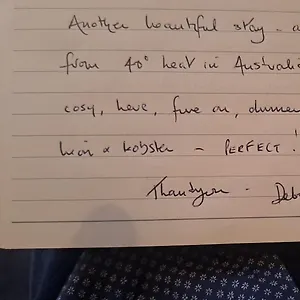 Another beautiful stay - a
from 40° heat in Australia
cosy, here, fire on, dinner
&
- PERFECT!
Thankyou - Deb